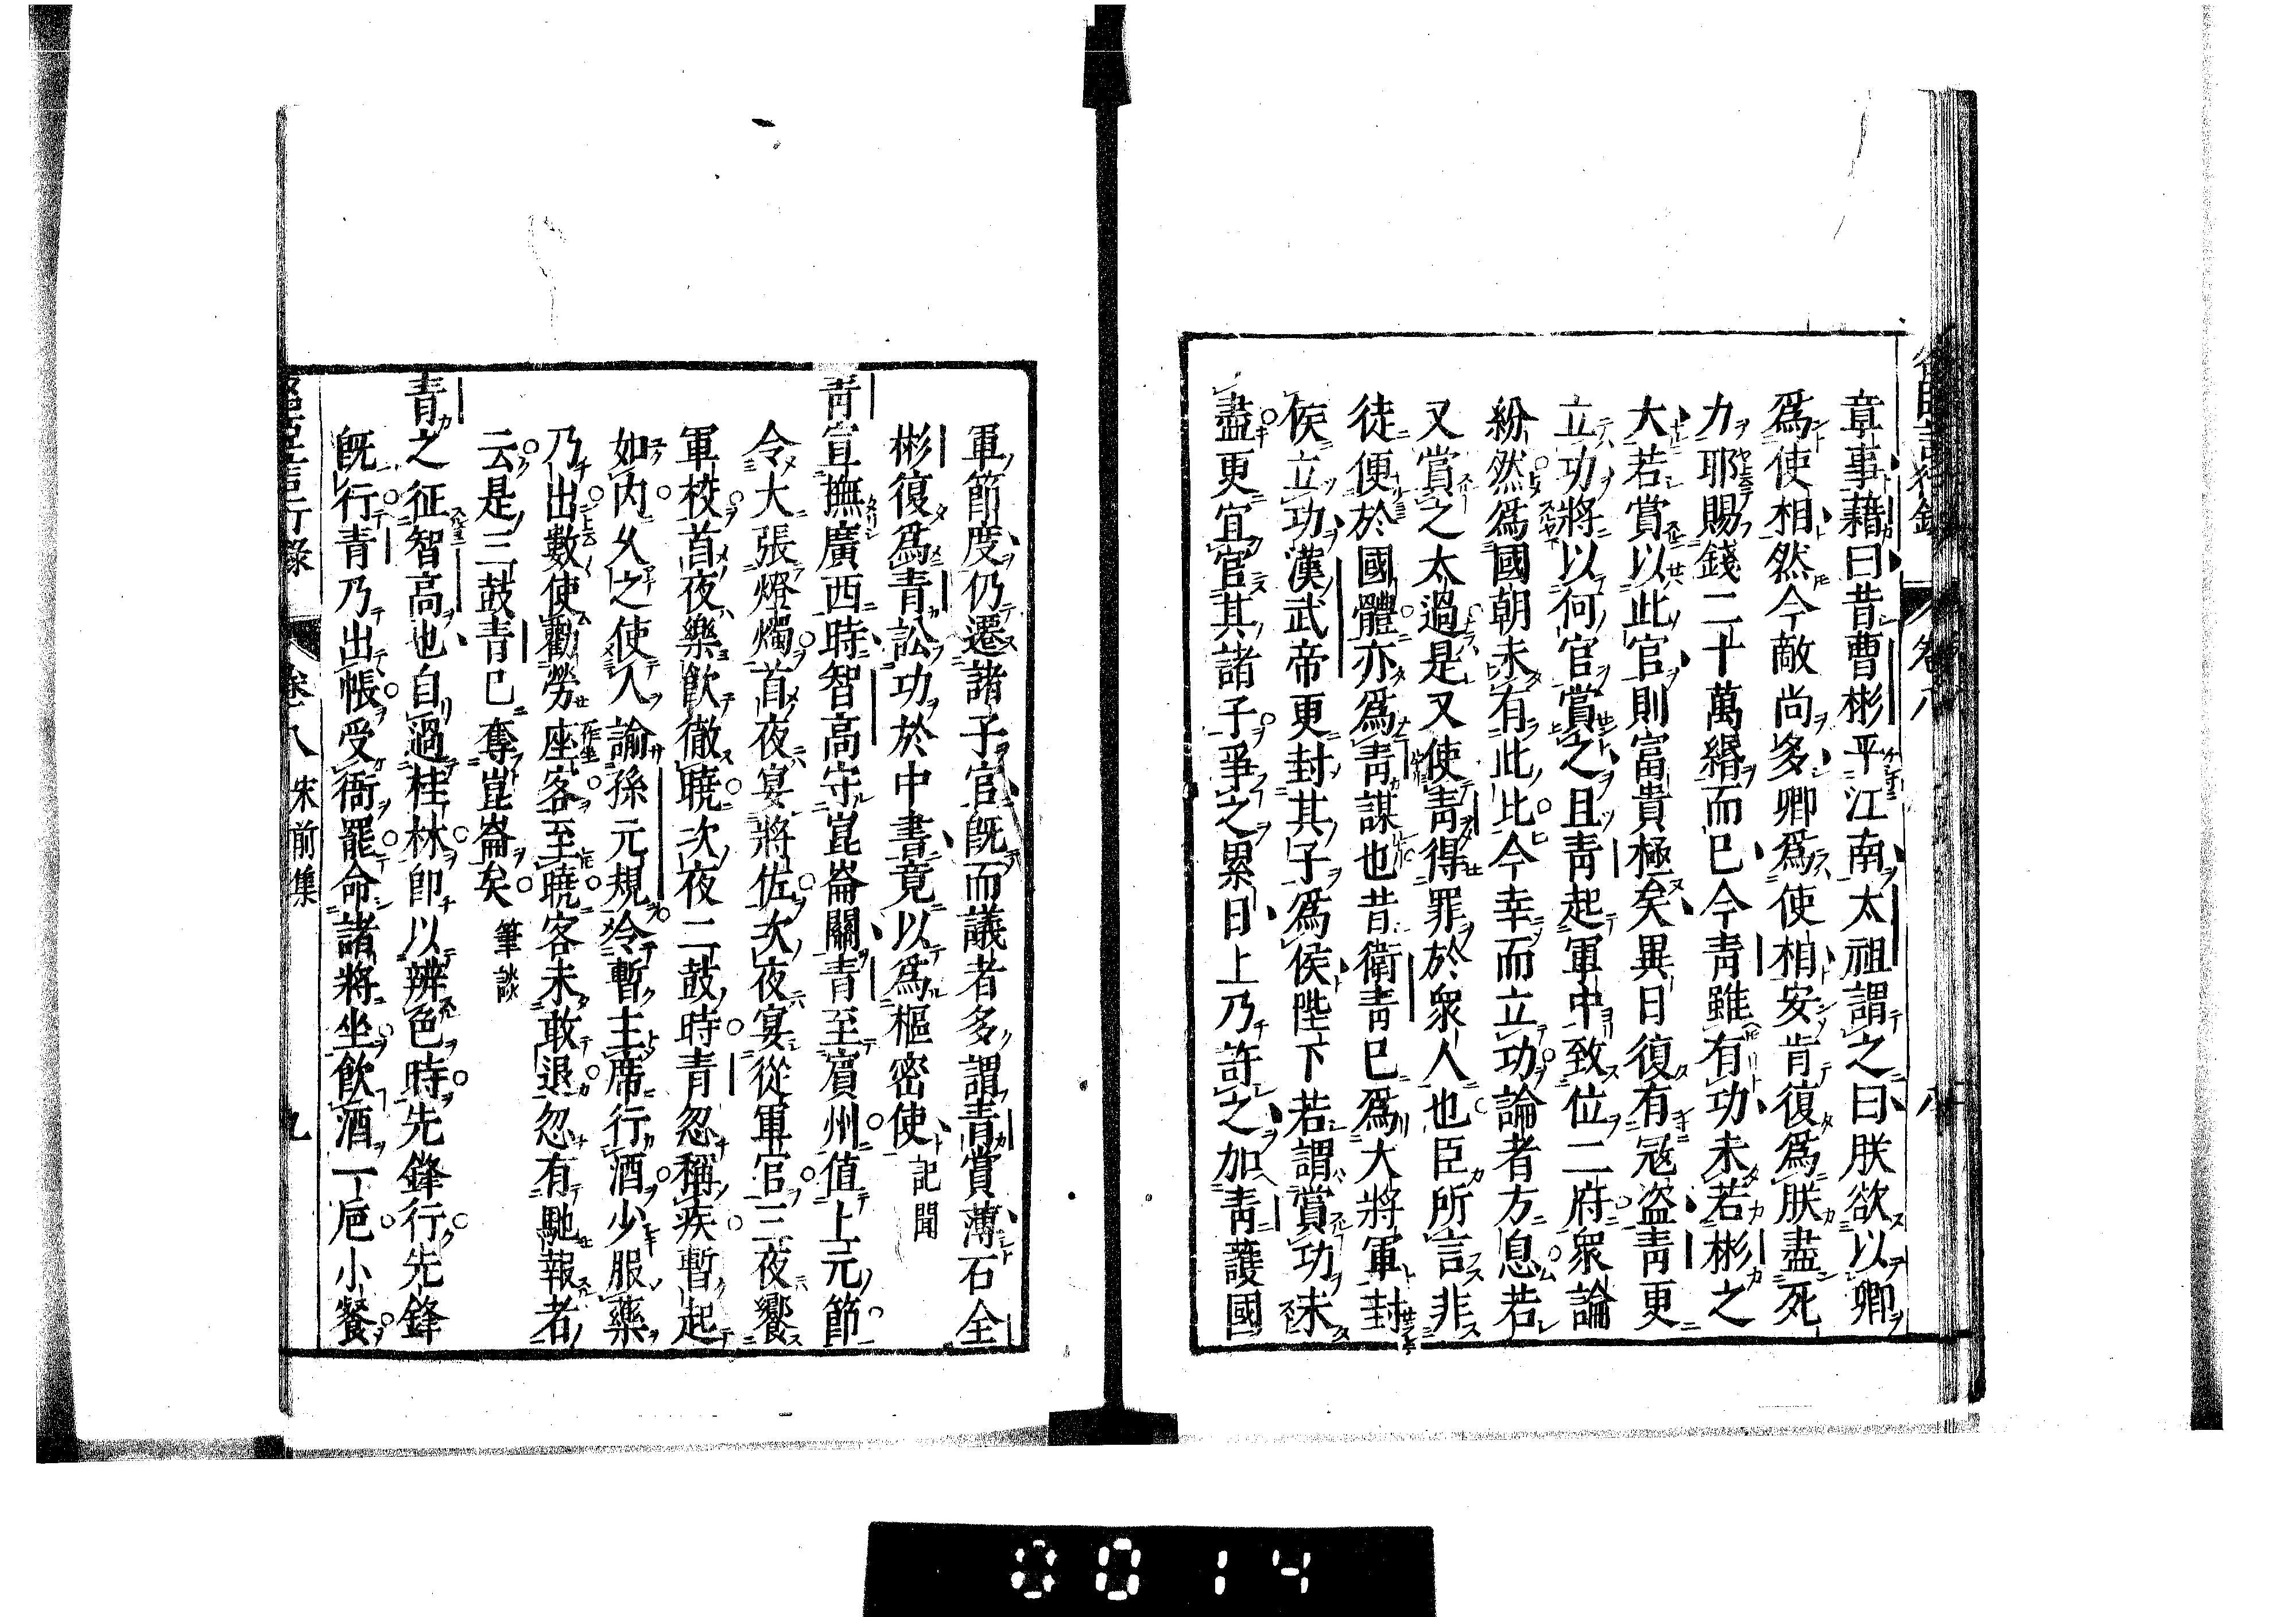 章事藉曰昔曹彬平江南太祖謂之曰朕欲以卿
爲使相然今敵尚多卿爲使相安肯復爲朕盡死
力耶賜錢二十萬緡而已今青雖有功未若彬之
大若賞以此官則富貴極矣異日復有冦盗青更
立功將以何官賞之且青起軍中致位二府衆論
紛然爲國朝未有此比今幸而立功論者方息若
又賞之太過是又使青得罪於衆人也臣所言非
徒便於國體亦爲青謀也昔衛青已爲大將軍封
侯立功漢武帝更封其子爲侯陛下若謂賞功未
盡更宜官其諸子爭之累日上乃許之加青護國
軍節度仍遷諸子官旣而議者多謂青賞薄石全
彬復爲青訟功於中書竟以爲樞密使記聞
青宣撫廣西時智高守崑崙關青至賓州値上元節
令大張燈燭首夜宴將佐次夜宴從軍官三夜饗
軍校首夜樂飲徹曉次夜二鼓時青忽稱疾暫起
如內乆之使人諭孫元規令暫主席行酒少服藥
乃出數使勸勞座客至曉客未敢退忽有馳報者
作坐
云是三鼓青已奪崑崙矣筆談
青之征智高也自過桂林卽以辨色時先鋒行先鋒
旣行青乃出帳受衙罷命諸將坐飲酒一巵小餐
言行錄 卷八 宋前集 九